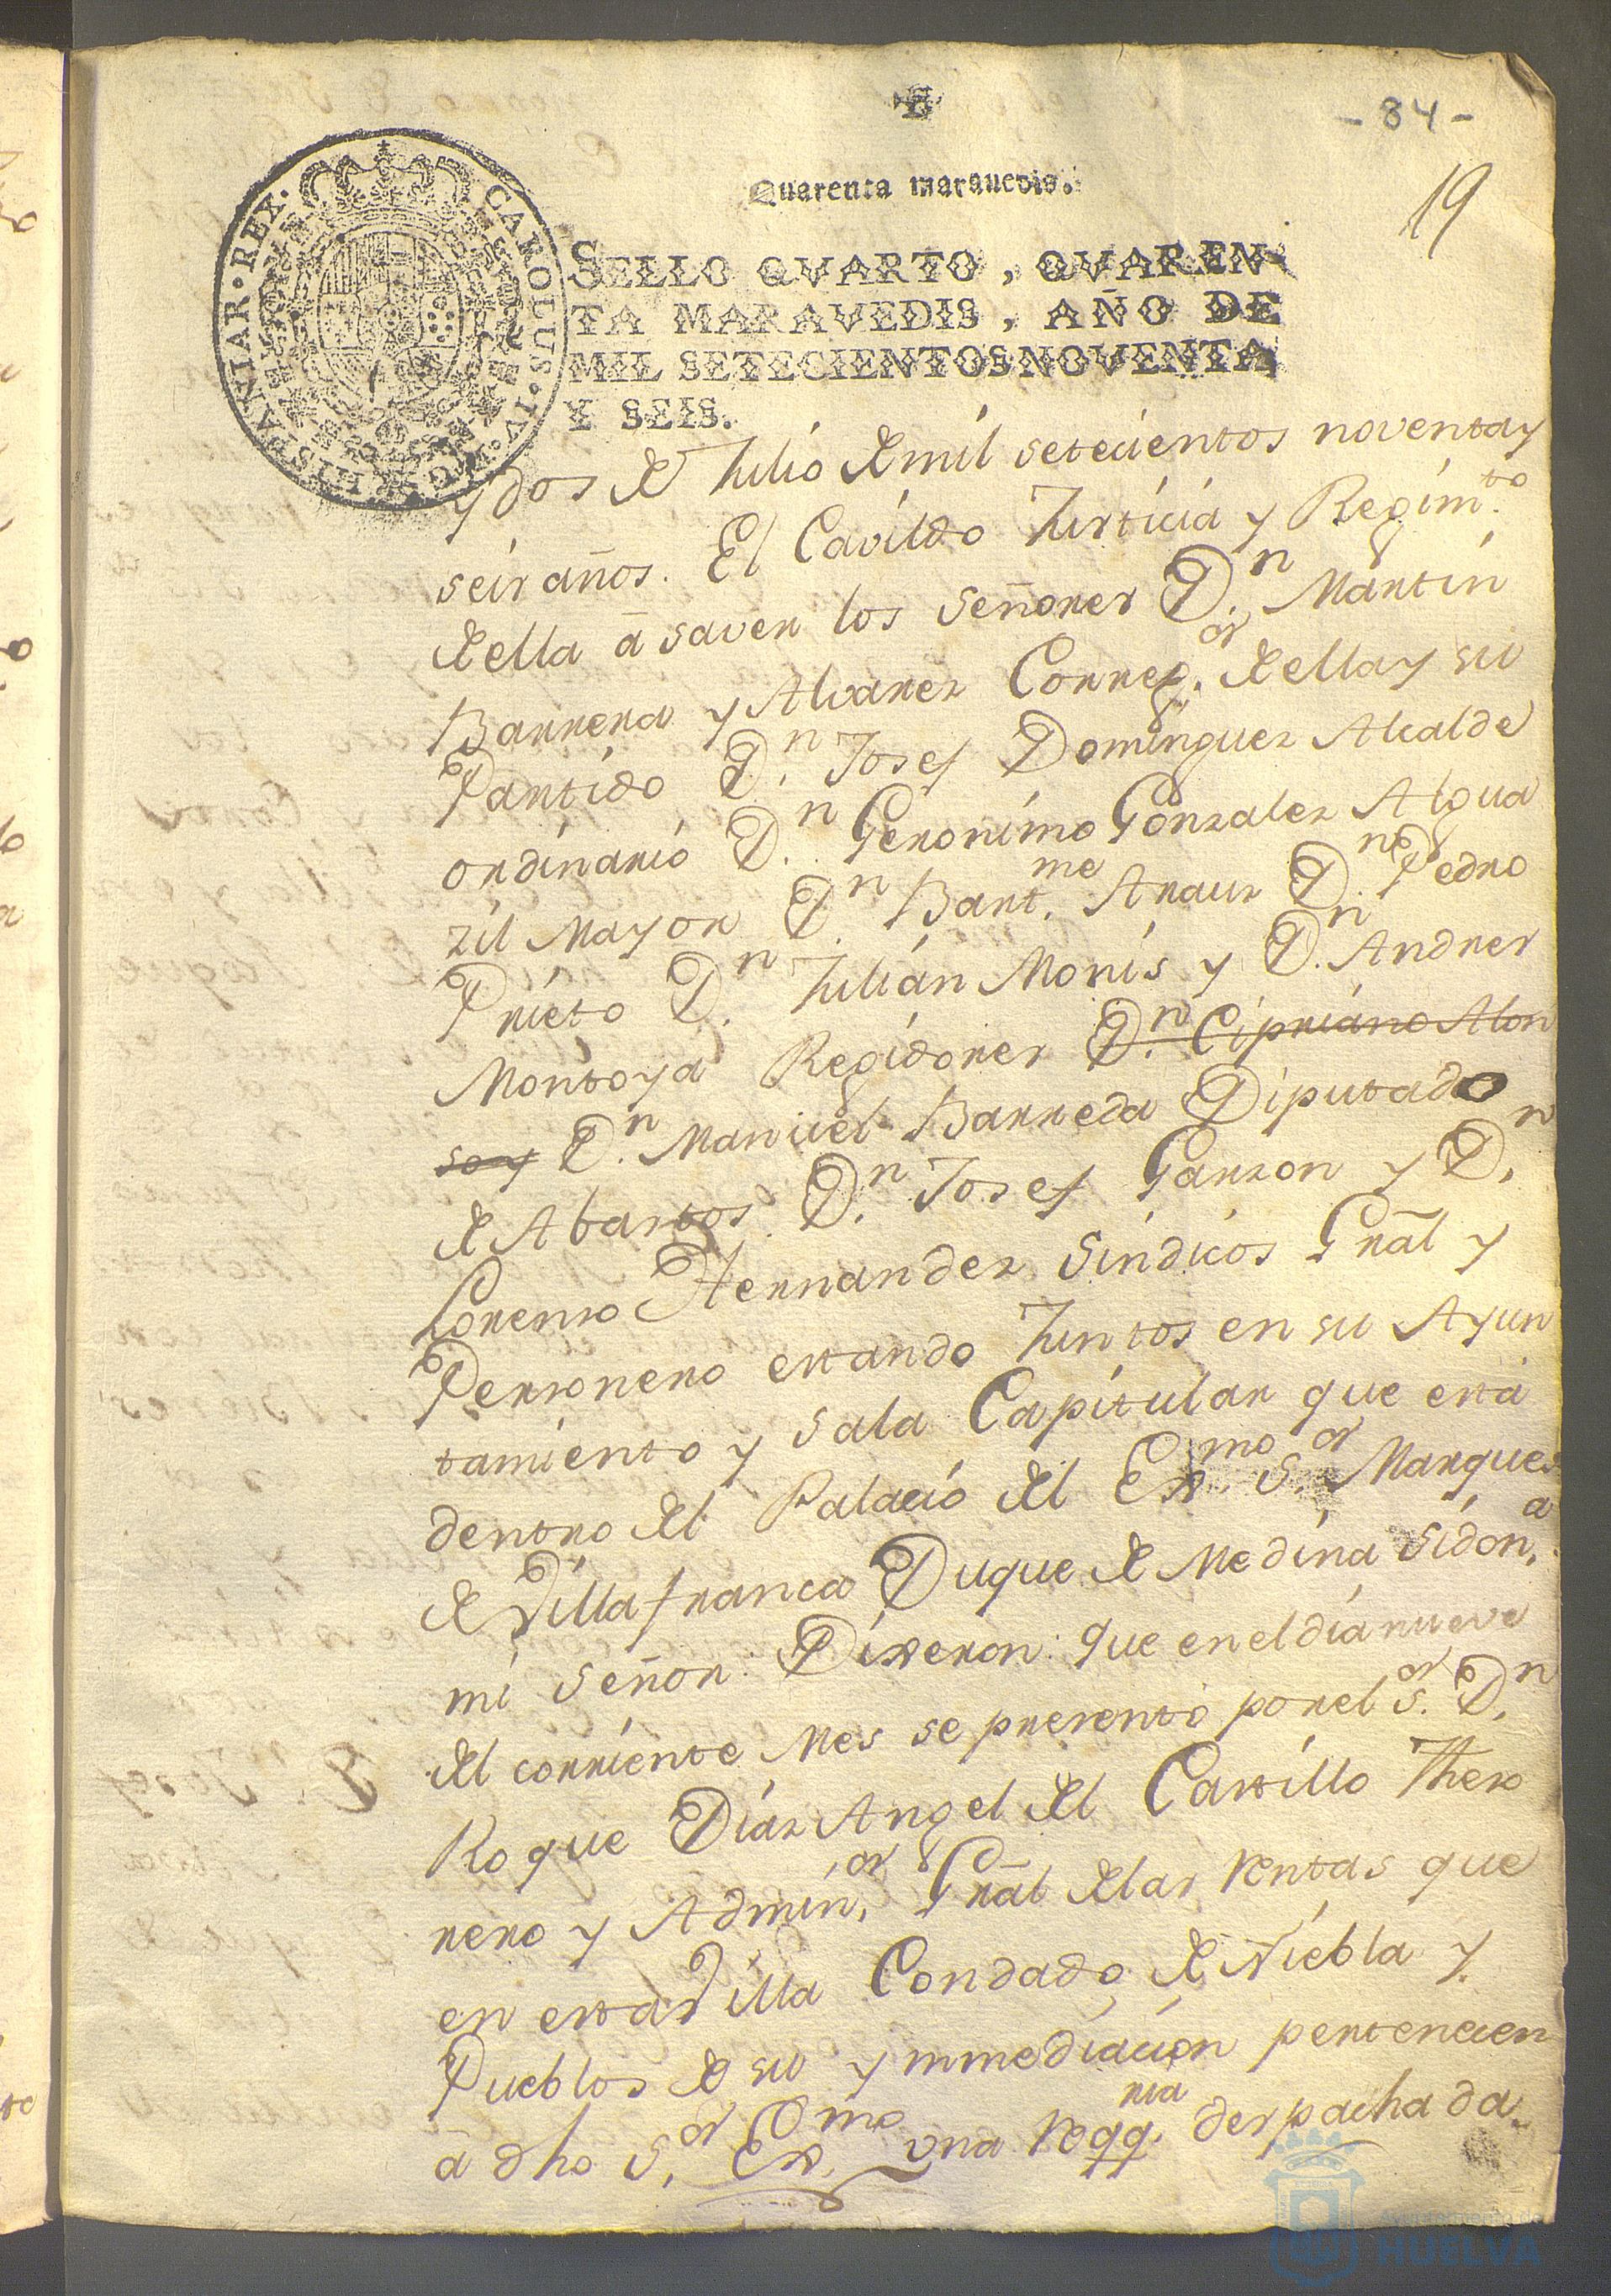 - 84 -
19
Quarenta marauedis.
SELLO QVARTO, QVAREN
TA MARAVEDIS, AÑO DE
MIL SETECIENTOS NOVENTA
Y SEIS.
CAROLUS · IV · D · G · HISPANIAR · REX ·
y dos de Julio de mil setecientos noventa y
seis años. El Cavildo Justicia y Regim.to
de ella â saver los Señores D.n Martin
Barrera y Alvarez Correg.or de ella y su
Partido D.n Josef Dominguez Alcalde
ordinario D.n Geronimo Gonzalez Algua
zil Mayor D.n Bart.me Arauz D.n Pedro
Prieto D.n Julián Monis y D.n Andres
Montoya Regidores D.n Cipriano Alon
so y D.n Manuel Barreda Diputado
de Abastos D.n Josef Garzon y D.n
Lorenzo Hernandez Sindicos Gral y
Personero estando Juntos en su Ayun
tamiento y Sala Capitular que está
dentro del Palacio del Ex.mo S.or Marques
de Villafranca Duque de Medina Sidon.a
mi Señor: Dixeron: que en el dia nueve
del corriente Mes se presentó por el S.or D.n
Roque Díaz Angel del Castillo Theso
rero y Admin.or Gral de las Rentas que
en esta Villa Condado de Niebla y
Pueblos de su ymmediación pertenecen
â dho S.or Ex.mo una Reqq.ria despachada
Ayuntamiento de
HUELVA